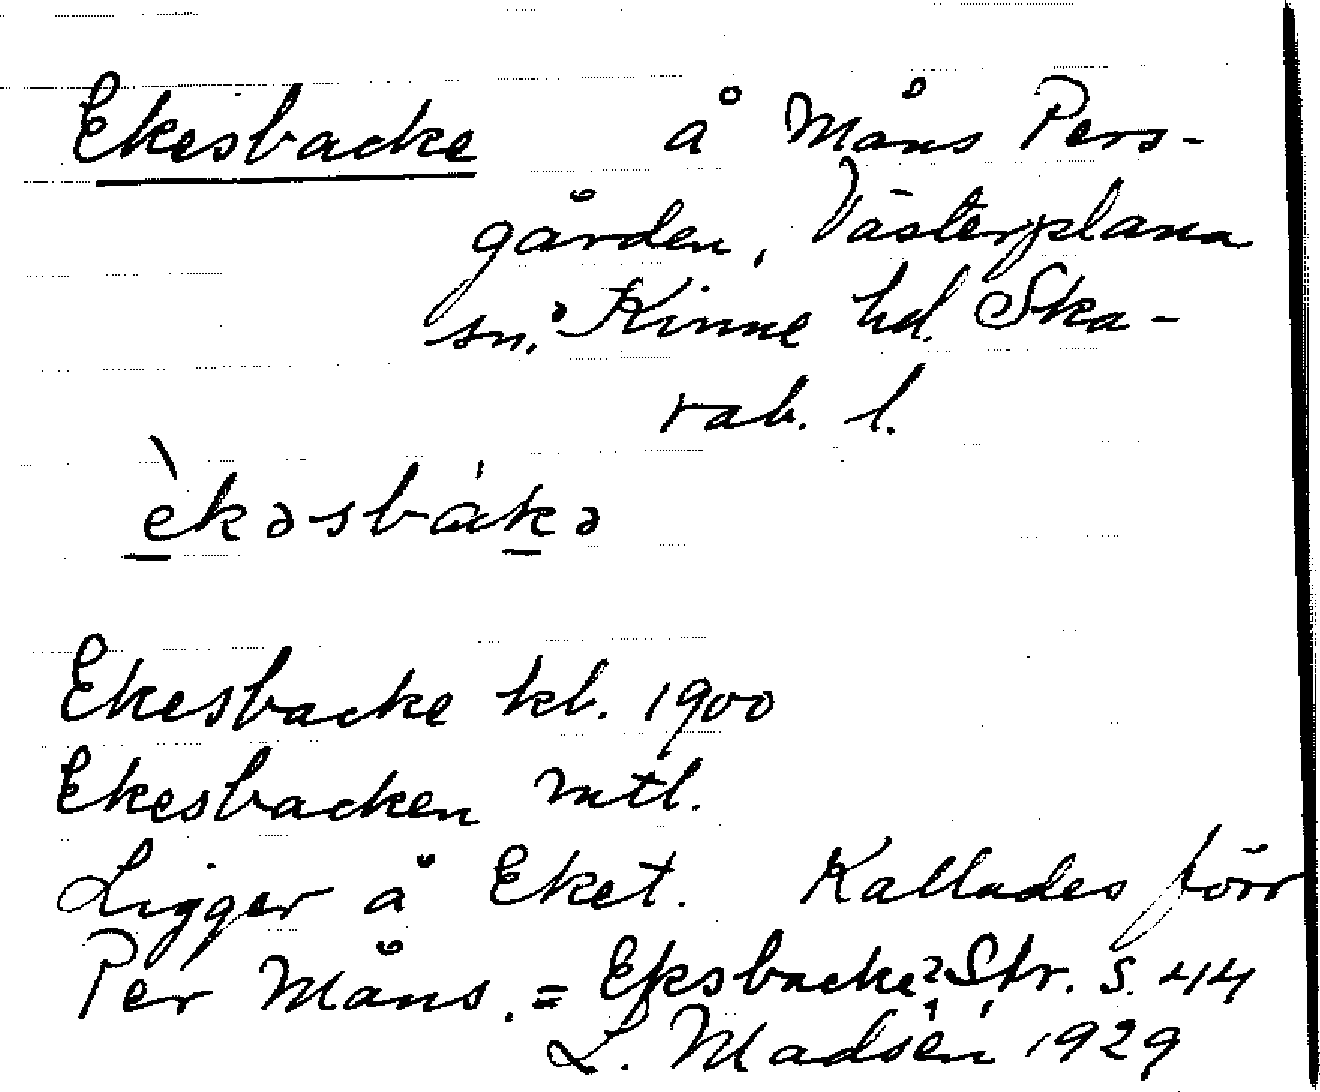 Ekesbacke å Måns Pers-
gården, Västerplana
sn, Kinne hd. Ska-
rab. l.
èkəsbákə
Ekesbacke kl. 1900
Ekesbacken mtl.
Ligger å Eket. Kallades förr
Per Måns. = Eksbacke? Str. s. 44
L. Madsén 1929